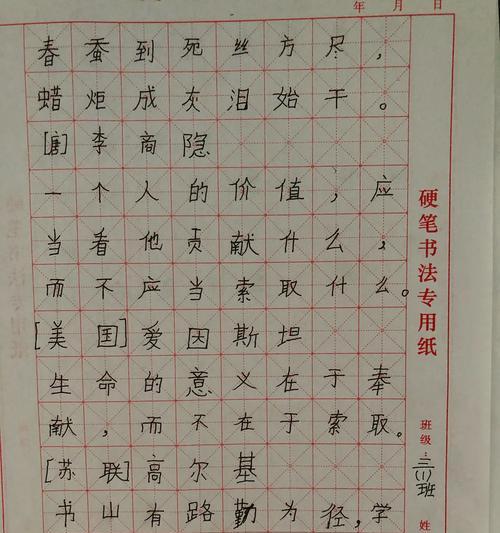 年 月 日
春蚕到死丝方尽，
蜡炬成灰泪始干。
[唐]李商隐
一个人的价值，应
当看他贡献什么，
而不应当索取什么。
[美国]爱因斯坦
生命的意义在于奉
献，而不在于索取。
[苏联]高尔基
书山有路勤为径，学
硬笔书法专用纸
班级：三(1)班
姓